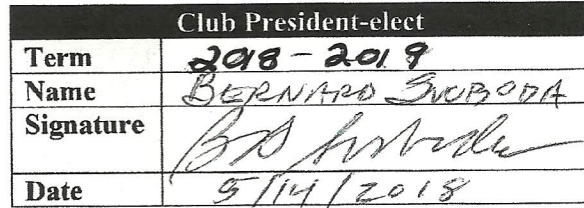 Club President-elect
Term 2018 - 2019
Name BERNARD SVOBODA
Signature
Date 5/14/2018